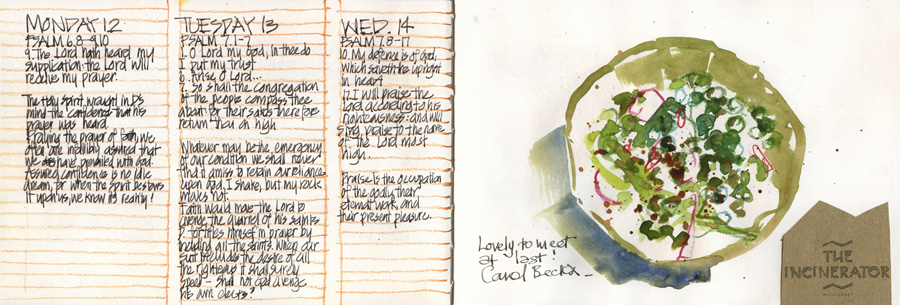 MONDAY 12
PSALM 6.8-9,10
9. The Lord hath heard my
supplication: the Lord will
receive my prayer.
The Holy Spirit wrought in D's
mind the confidence that his
prayer was heard.
Praying the prayer of faith, we
often are infallibly assured that
we have prevailed with God.
Assured confidence is no idle
dream, for when the Spirit bestows
it upon us, we know its reality!
TUESDAY 13
PSALM 7.1-7
1. O Lord my God, in thee do
I put my trust
6. Arise O Lord...
7. So shall the congregation
of the people compass thee
about: for their sakes therefore
return thou on high
Whatever may be the emergency
of our condition we shall never
find it amiss to retain our reliance
upon God. I shake, but my rock
moves not.
Faith would move the Lord to
avenge the quarrel of his saints
himself in prayer by
including all the saints. When our
suit includes the desire of all
the righteous it shall surely
speed - shall not God avenge
his own elects?
WED. 14
PSALM 7.8-17
10. My defence is of God,
which saveth the upright
in heart
17. I will praise the
Lord according to his
righteousness: and will
sing praise to the name
of the Lord most
high.
Praise is the occupation
of the godly, their
eternal work, and
their present pleasure.
Lovely to meet
at last!
Carol Beck x
THE
INCINERATOR